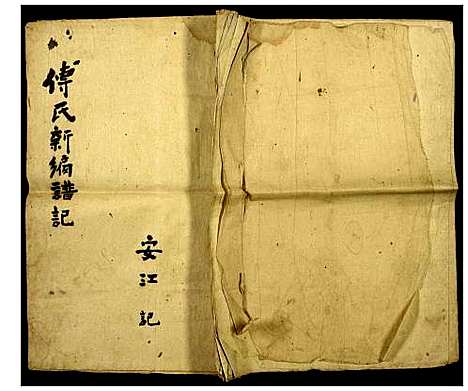 傅氏新编譜記
安江記